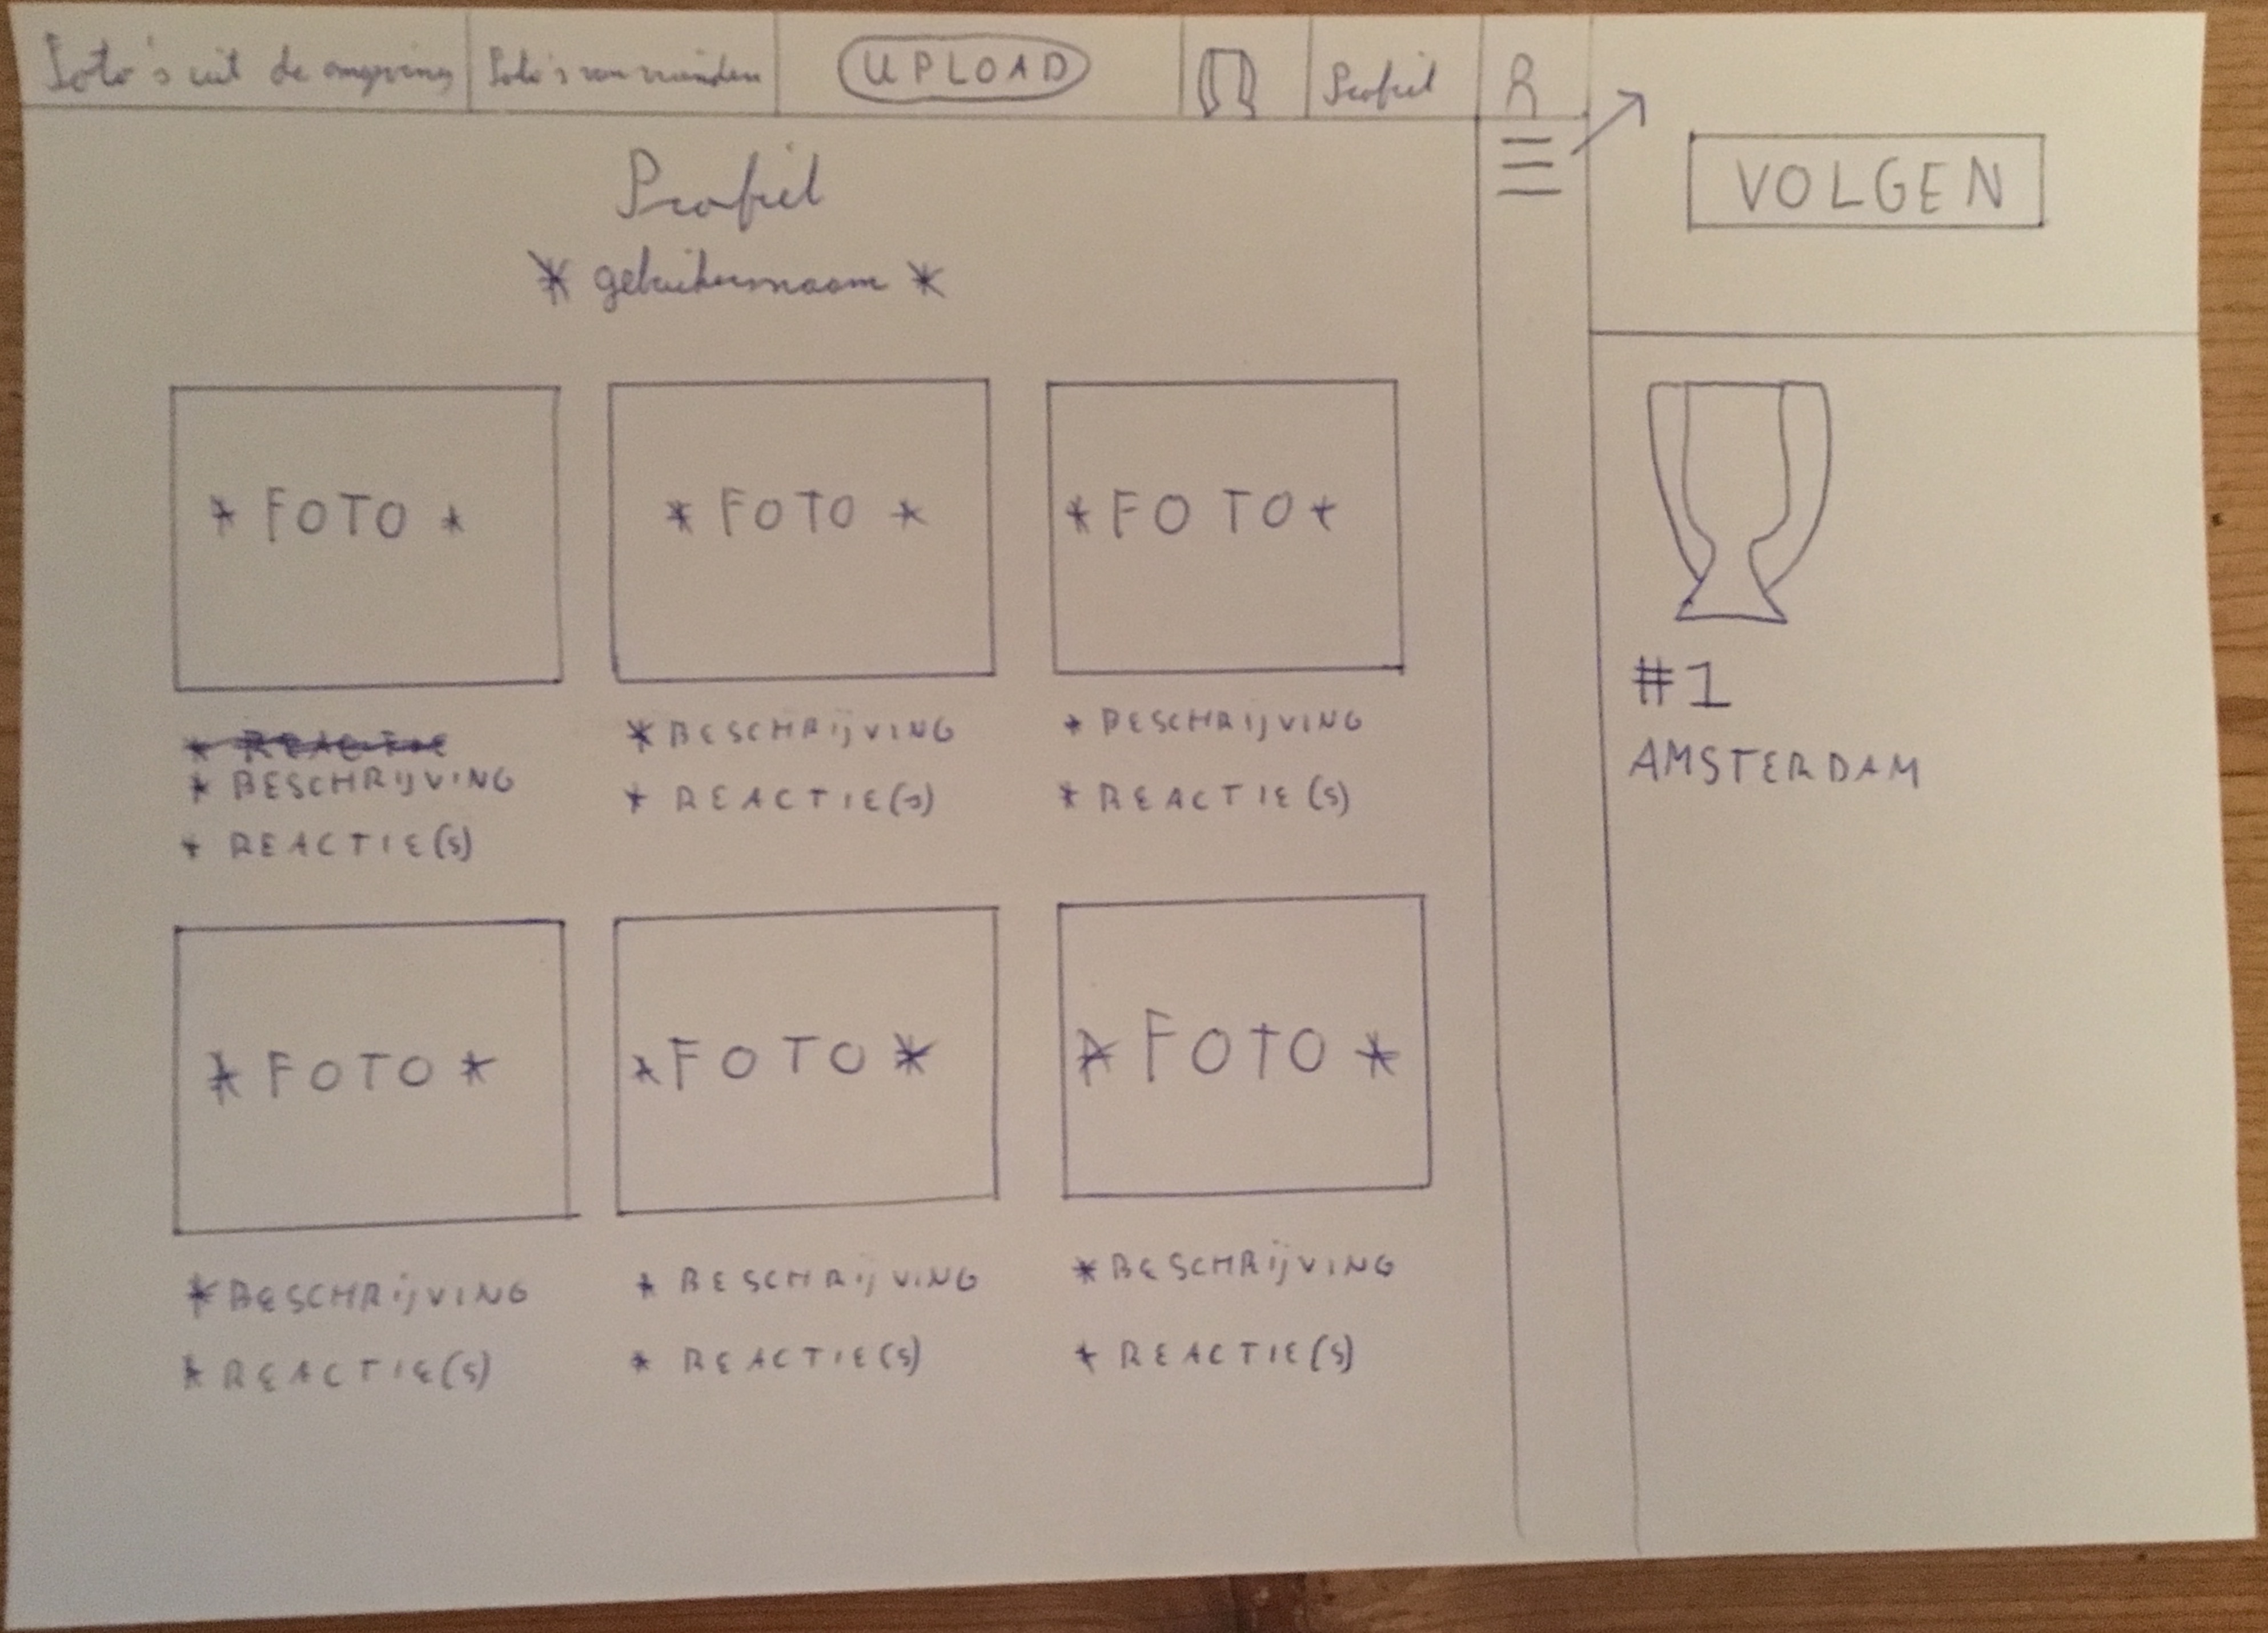 Foto's uit de omgeving
Foto's van vrienden
UPLOAD
Profiel
Profiel
* gebruikersnaam *
VOLGEN
* FOTO *
* FOTO *
* FOTO *
* BESCHRIJVING
* REACTIE(S)
* BESCHRIJVING
* REACTIE(S)
* BESCHRIJVING
* REACTIE(S)
#1
AMSTERDAM
* FOTO *
* FOTO *
* FOTO *
* BESCHRIJVING
* REACTIE(S)
* BESCHRIJVING
* REACTIE(S)
* BESCHRIJVING
* REACTIE(S)